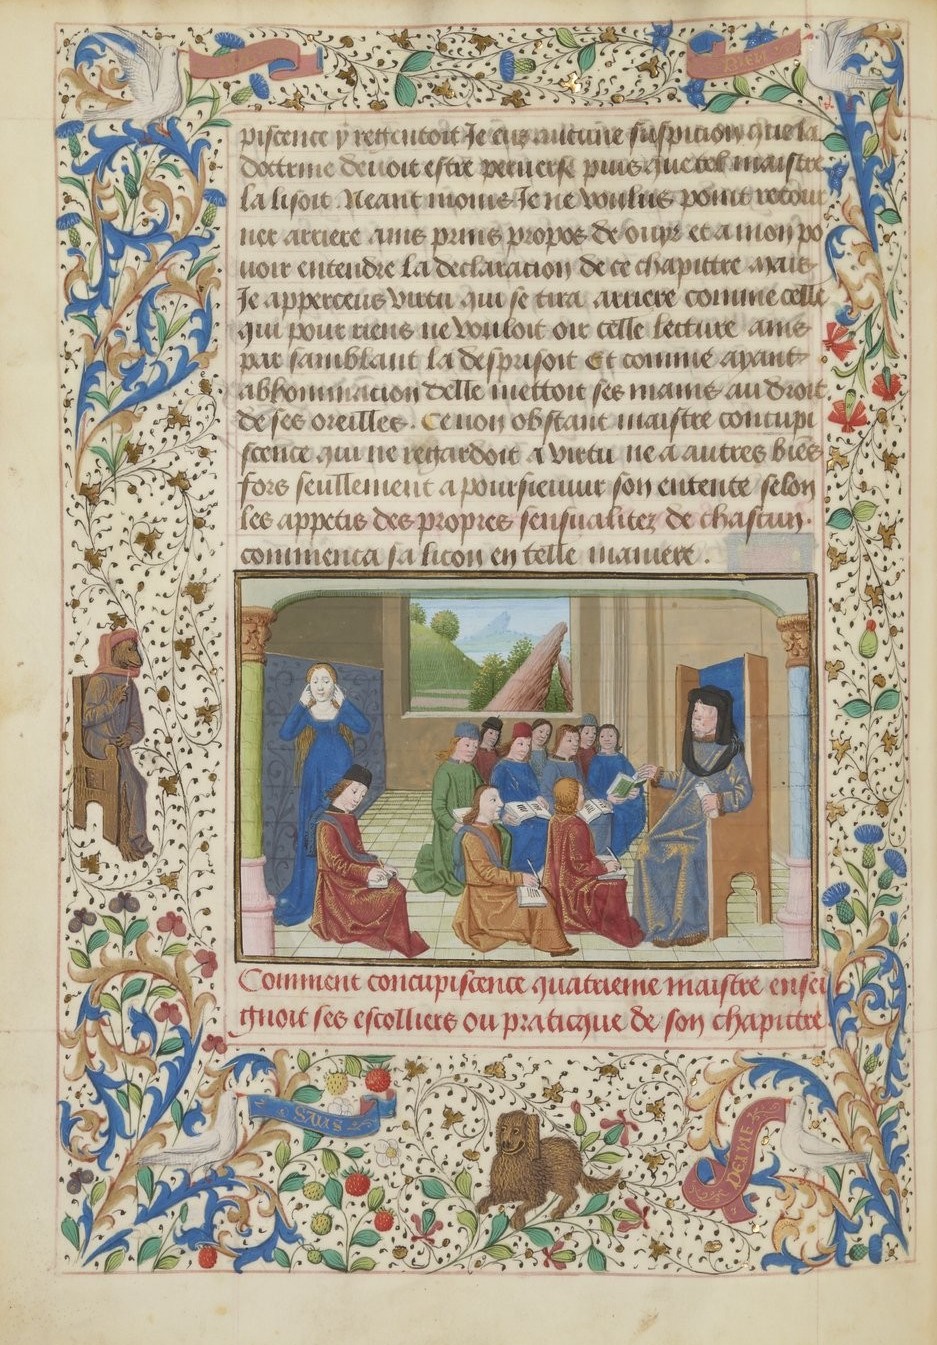 DIEU
piscence y rettentoit Je eus aucune suspicion que la
doctrine devoit estre perverse puis que tel maistre
la lisoit. Neant moins Je ne voulus point retour
ner arriere ains prins propos de ouyr et a mon po
voir entendre la declaration de ce chapittre Mais
Je apperceus Vertu qui se tira arriere comme celle
qui pour riens ne vouloit oir celle lecture ains
par samblant la desprisoit Et comme ayant
abhominacion delle mettoit ses mains au droit
de ses oreilles. Ce non obstant maistre concupi
scence qui ne regardoit a Virtu ne a autres bies
fors seullement a poursievuir son entente selon
les appetis des propres sensualitez de chascun.
commenca sa licon en telle maniere.
Comment concupiscence quatrieme maistre ensei
gnoit ses escolliers ou praticque de son chapittre
SANS
PEINE